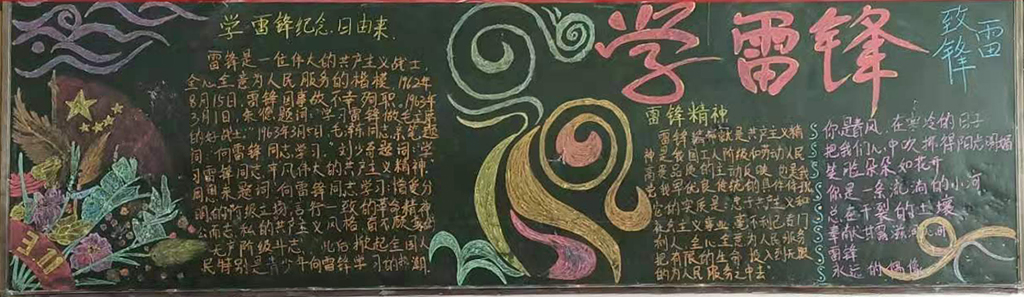 学雷锋纪念日由来
雷锋是一位伟人的共产主义战士
全心全意为人民服务的楷模.1962年
8月15日,雷锋因事故不幸殉职.1963年
3月1日,朱德题词:"学习雷锋做毛主席
的好战士"1963年3月5日,毛泽同志亲笔题
词:"向雷锋同志学习."刘少奇题词:学
习雷锋同志平凡伟大的共产主义精神.
周恩来题词:向雷锋同志学习:憎爱分
明的阶级立场,言行一致的革命精神,
公而忘私的共产主义风格,奋不顾身
无产阶级斗志.此后掀起全国人
民特别是青少年向雷锋学习的热潮.
学雷锋
雷锋精神
雷锋精神就是共产主义精
神是我国工人阶级和劳动人民
它的实质是:忠于共产主义和
利人,全心全意为人民服务
把有限的生命,投入到无限
的为人民服务之中去"
致雷锋
你是春风,在寒冷的日子
把我们心中吹
笑脸朵朵如花开
你是一条流淌的小河
总在干裂的土壤
雷锋
永远的偶像